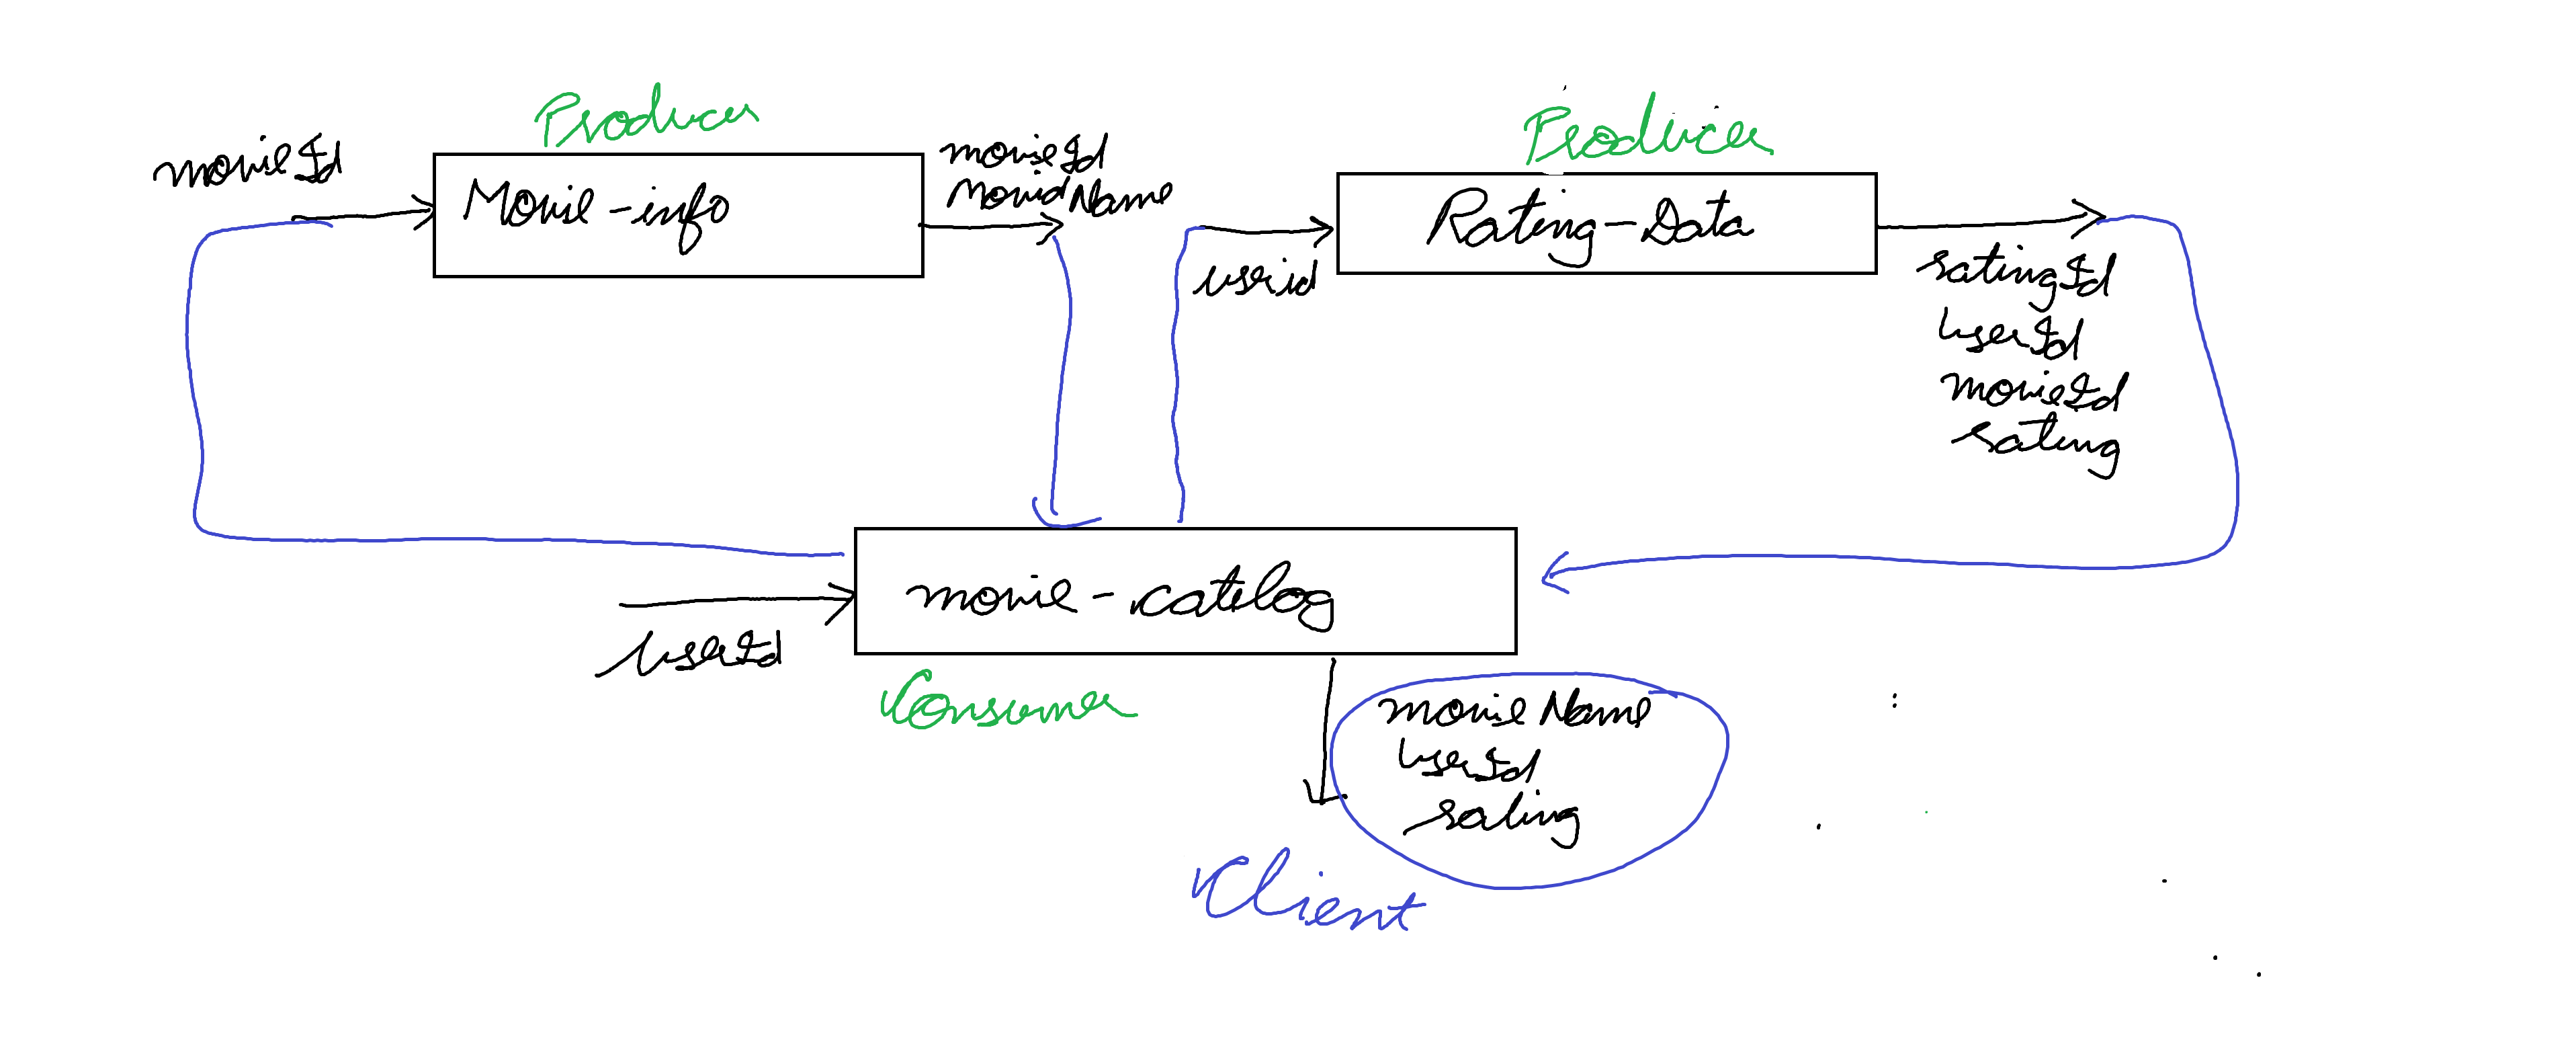 Producer
movieId
Movie-info
movieId
MovieName
Producer
Rating-Data
userid
ratingId
userId
movieId
rating
movie-catelog
userId
Consumer
movieName
userId
rating
Client